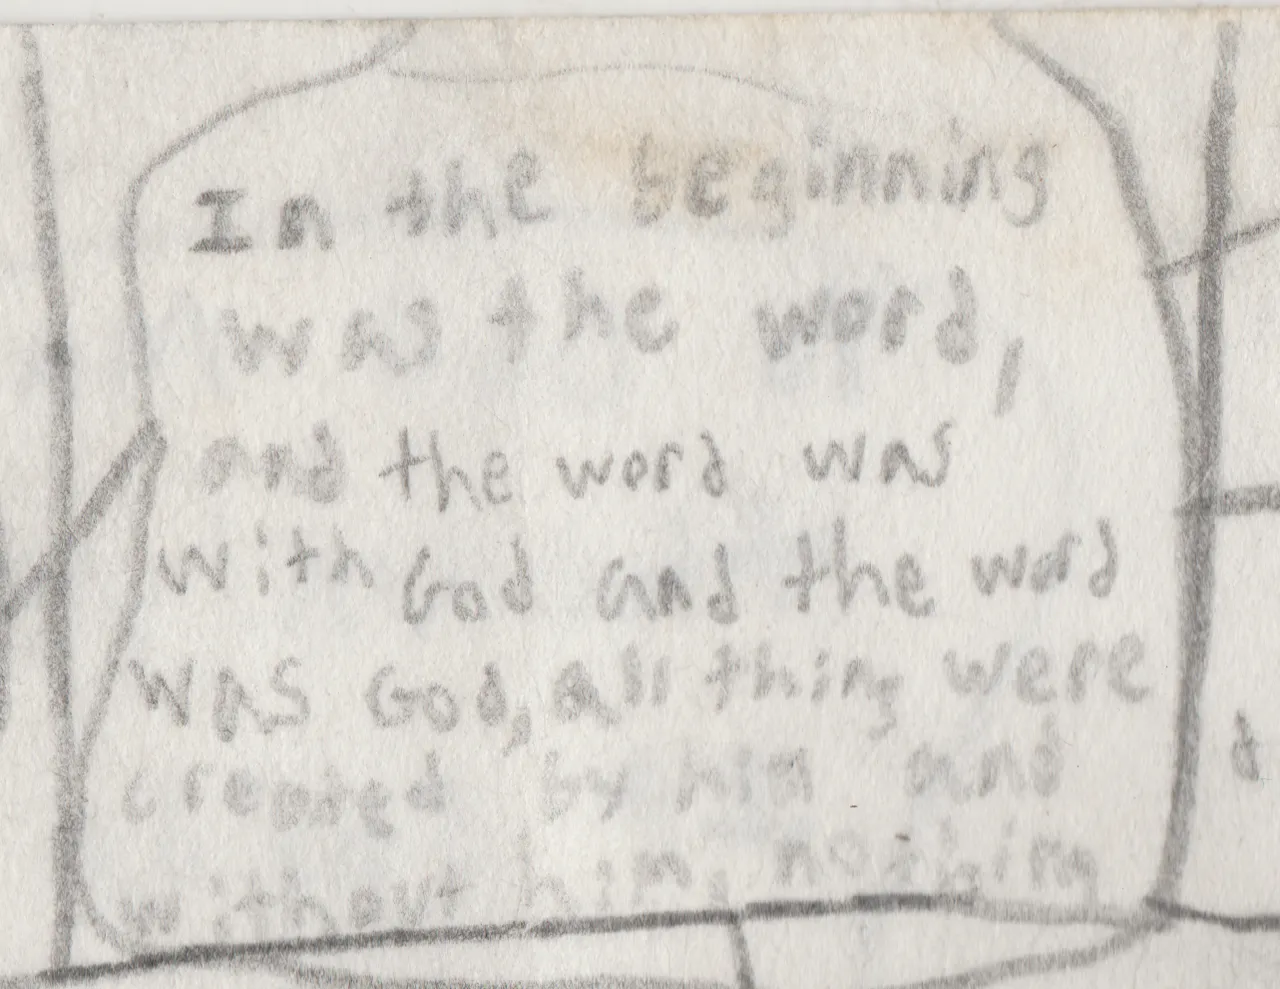 In the beginning
was the word,
and the word was
with God and the word
was God, all thing were
created by him and
without him, nothing